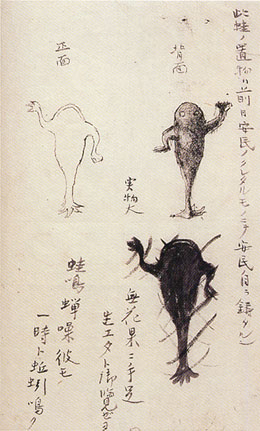 此蛙ノ置物ハ前日安民ノクレタルモノニテ安民自ラ鋳タル
背面
正面
実物大
無花果ニ手足
生エタト御覧ゼヨ
蛙鳴蝉噪彼モ
一時ト蚯蚓鳴ク